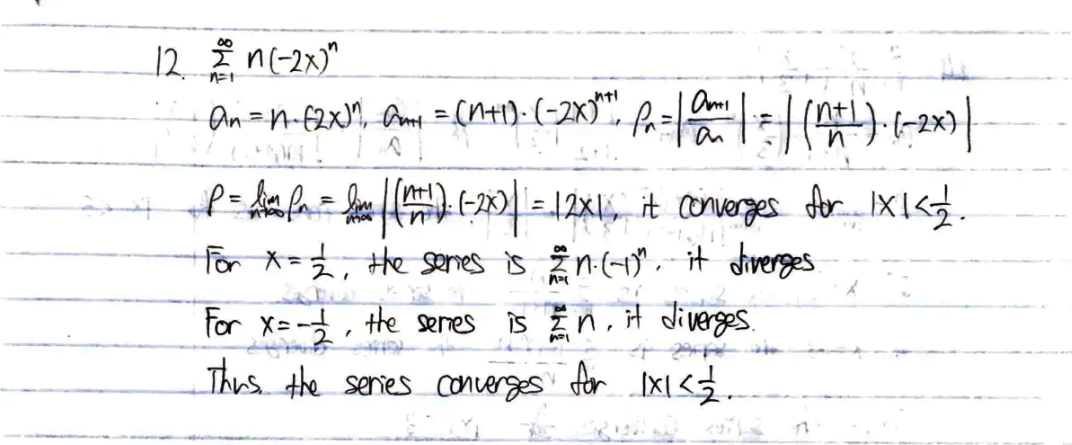 12. ∑_{n=1}^{∞} n(-2x)^n
a_n = n·(-2x)^n, a_{n+1} = (n+1)·(-2x)^{n+1}, ρ_n = |a_{n+1}/a_n| = |((n+1)/n)·(-2x)|
ρ = lim_{n→∞} ρ_n = lim_{n→∞} |((n+1)/n)·(-2x)| = |2x|, it converges for |x|<1/2.
For x = 1/2, the series is ∑_{n=1}^{∞} n·(-1)^n, it diverges
For x = -1/2, the series is ∑_{n=1}^{∞} n, it diverges.
Thus, the series converges for |x|<1/2.